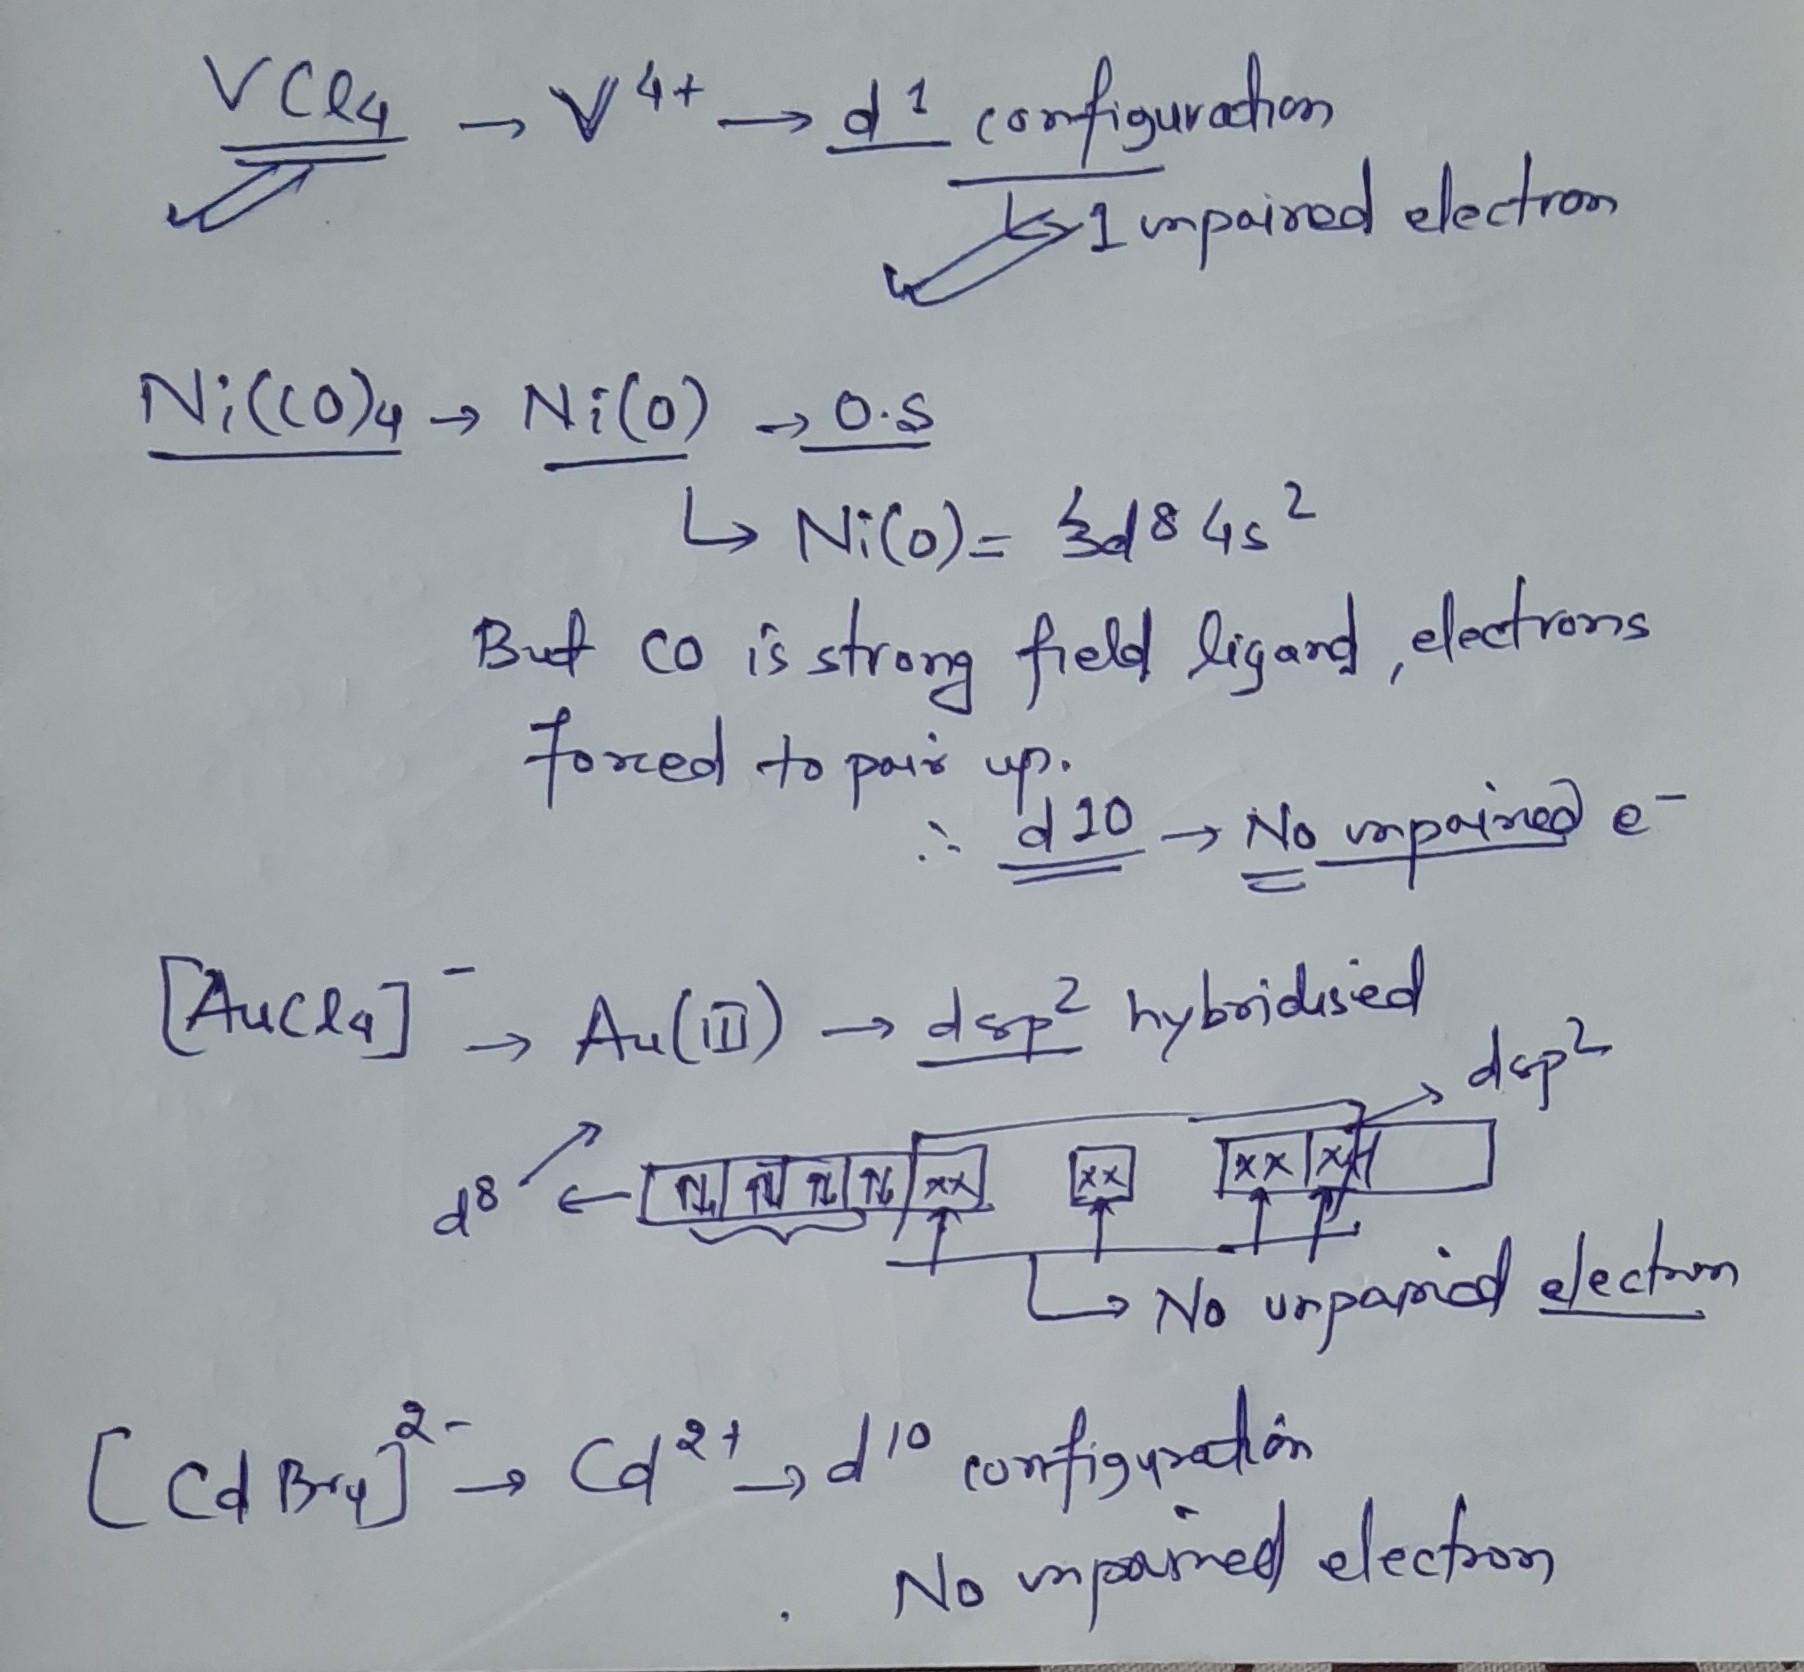 VCl4 → V4+ → d1 configuration
↳ 1 unpaired electron
Ni(CO)4 → Ni(0) → O.S
↳ Ni(0) = 3d8 4s2
But CO is strong field ligand, electrons
forced to pair up.
∴ d10 → No unpaired e-
[AuCl4]- → Au(III) → dsp2 hybridised
dsp2
d8 ← ⇅ ⇅ ⇅ ⇅ xx xx xx xx
↳ No unpaired electron
[CdBr4]2- → Cd2+ → d10 configuration
No unpaired electron